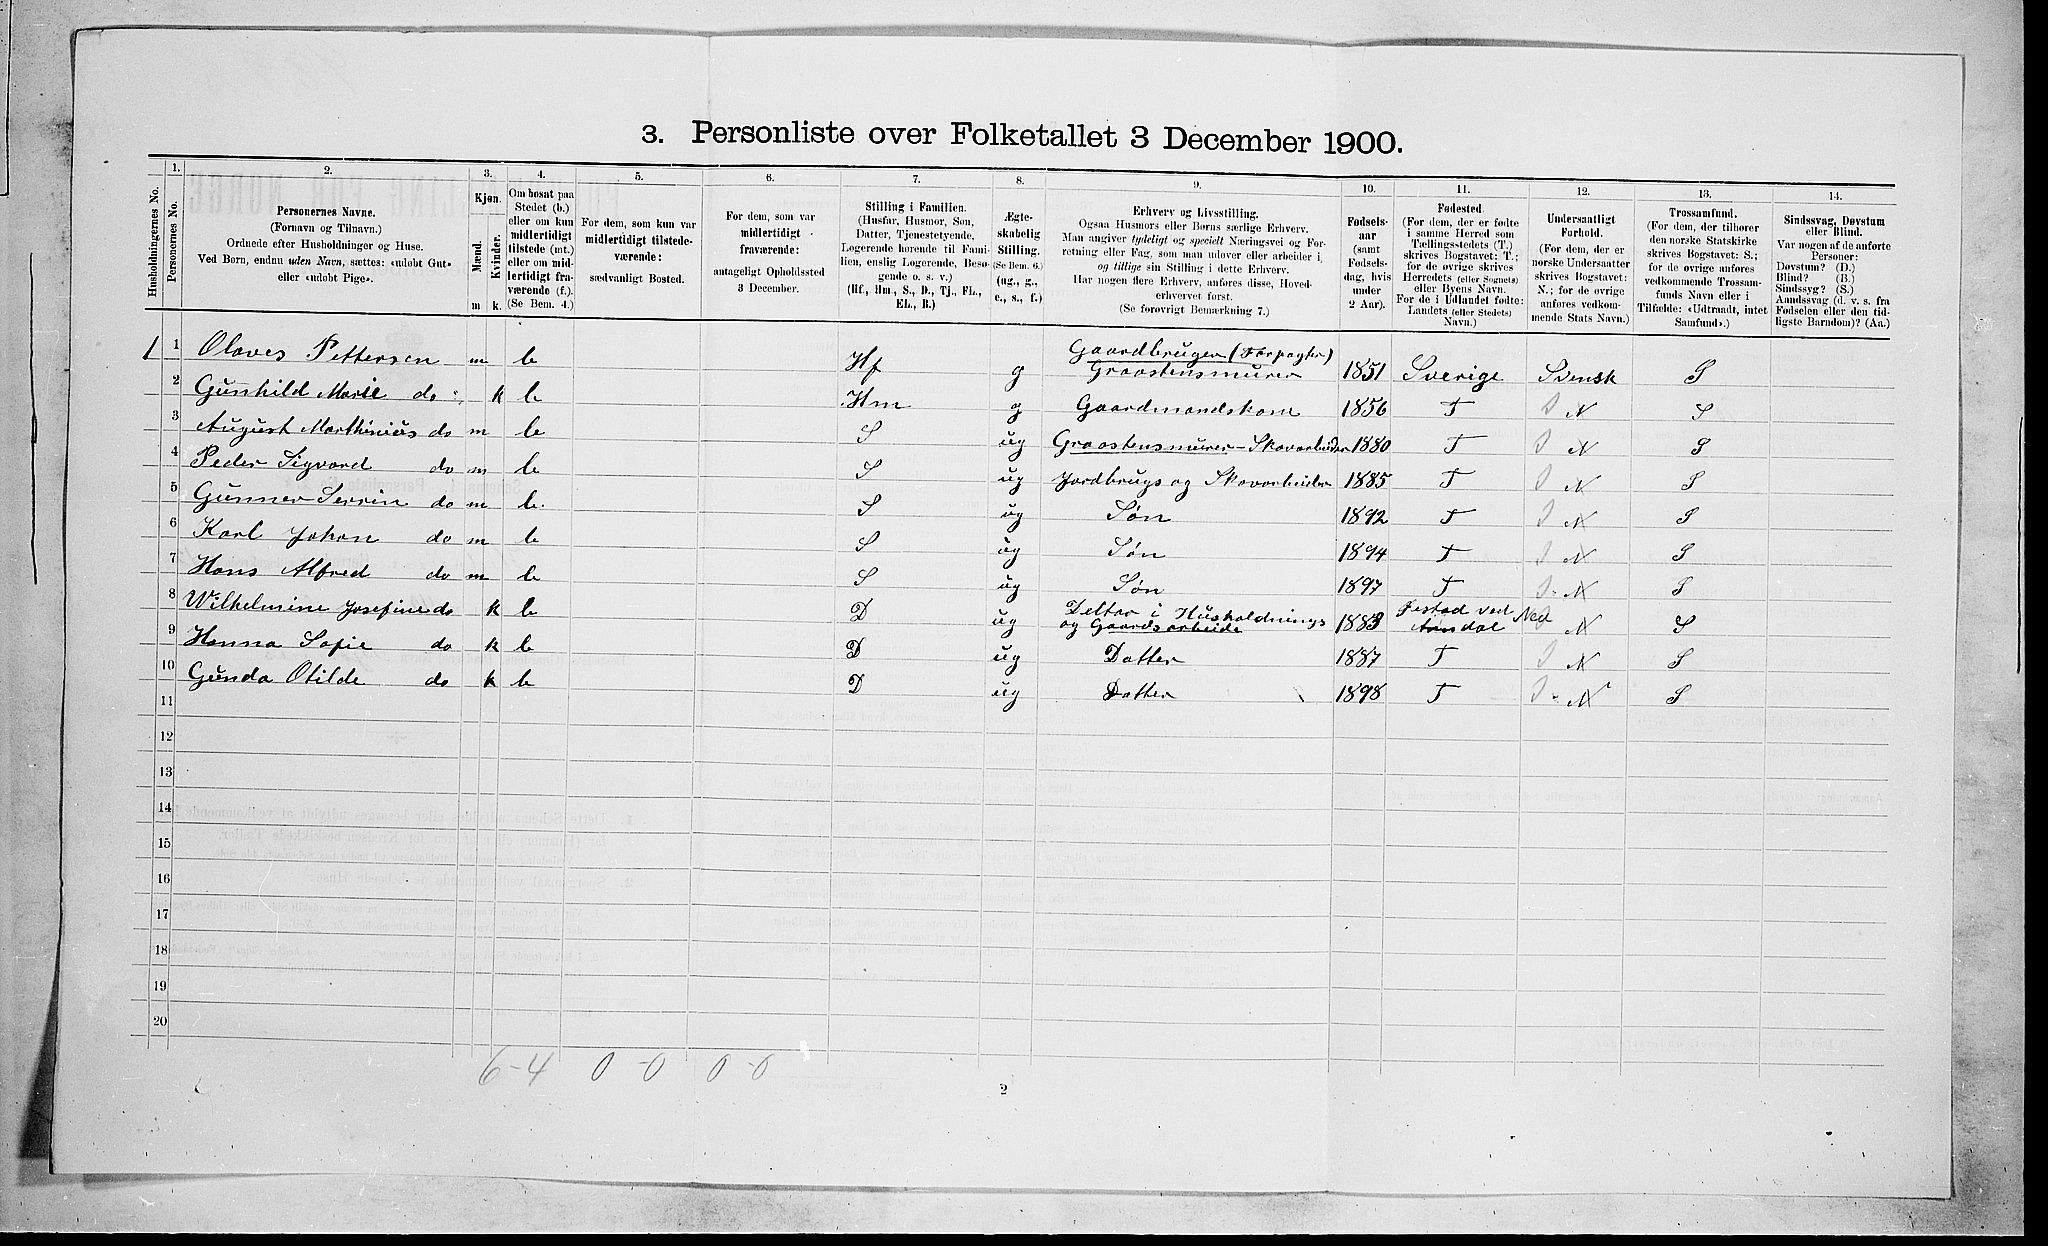 3. Personliste over Folketallet 3 December 1900.
1. 2. 3. 4. 5. 6. 7. 8. 9. 10. 11. 12. 13. 14.
Husholdningernes No.
Personernes No.
Personernes Navne.
(Fornavn og Tilnavn.)
Ordnede efter Husholdninger og Huse.
Ved Børn, endnu uden Navn, sættes: «udøbt Gut»
eller «udøbt Pige».
Kjøn.
Mænd.
Kvinder.
m k.
Om bosat paa
Stedet (b.)
eller om kun
midlertidigt
tilstede (mt.)
eller om mid-
lertidigt fra-
værende (f.).
(Se Bem. 4.)
For dem, som kun var
midlertidigt tilstede-
værende:
sædvanligt Bosted.
For dem, som var
midlertidigt
fraværende:
antageligt Opholdssted
3 December.
Stilling i Familien.
(Husfar, Husmor, Søn,
Datter, Tjenestetyende,
Logerende hørende til Fami-
lien, enslig Logerende, Besø-
gende o. s. v.)
(Hf., Hm., S., D., Tj., FL.,
EL., B.)
Ægte-
skabelig
Stilling.
(Se Bem. 6.)
(ug., g.,
e., s., f.)
Erhverv og Livsstilling.
Ogsaa Husmors eller Børns særlige Erhverv.
Man angiver tydeligt og specielt Næringsvei og For-
retning eller Fag, som man udøver eller arbeider i,
og tillige sin Stilling i dette Erhverv.
Har nogen flere Erhverv, anføres disse, Hoved-
erhvervet først.
(Se forøvrigt Bemærkning 7.)
Fødsels-
aar
(samt
Fødsels-
dag, hvis
under
2 Aar).
Fødested.
(For dem, der er fødte
i samme Herred som
Tællingsstedets (T.)
skrives Bogstavet: T.;
for de øvrige skrives
Herredets (eller Sognets)
eller Byens Navn.
For de i Udlandet fødte:
Landets (eller Stedets)
Navn.)
Undersaatligt
Forhold.
(For dem, der er
norske Undersaatter
skrives Bogstavet:
N.; for de øvrige
anføres vedkom-
mende Stats Navn.)
Trossamfund.
(For dem, der tilhører
den norske Statskirke
skrives Bogstavet: S.;
for de øvrige anføres
vedkommende Trossam-
funds Navn eller i
Tilfælde: «Udtraadt, intet
Samfund».)
Sindssvag, Døvstum
eller Blind.
Var nogen af de anførte
Personer:
Døvstum? (D.)
Blind? (B.)
Sindssyg? (S.)
Aandssvag (d. v. s. fra
Fødselen eller den tid-
ligste Barndom)? (Aa.)
1 1 Olaves Pettersen m b Hf g Gaardbruger (Forpagter) Graastensmurer 1851 Sverige Svensk S
2 Gunhild Marie do k b Hm g Gaardmandskone 1856 T N S
3 August Marthinius do m b S ug Graastensmurer - Skovarbeider 1880 T N S
4 Peder Sigvard do m b S ug Jordbrugs og Skovarbeider 1885 T N S
5 Gunner Serrin do m b. S ug Søn 1892 T N S
6 Karl Johan do m b S ug Søn 1894 T N S
7 Hans Alfred do m b S ug Søn 1897 T N S
8 Wilhelmine Josefine do k b D ug Deltar i Husholdnings og Gaardsarbeide 1883 ved N S
9 Hanna Sofie do k b D ug Datter 1887 T N S
10 Gunda Otilde do k b D ug Datter 1898 T N S
11
12
13
14
15
16
17
18
19
20
6-4 0-0 0-0
2